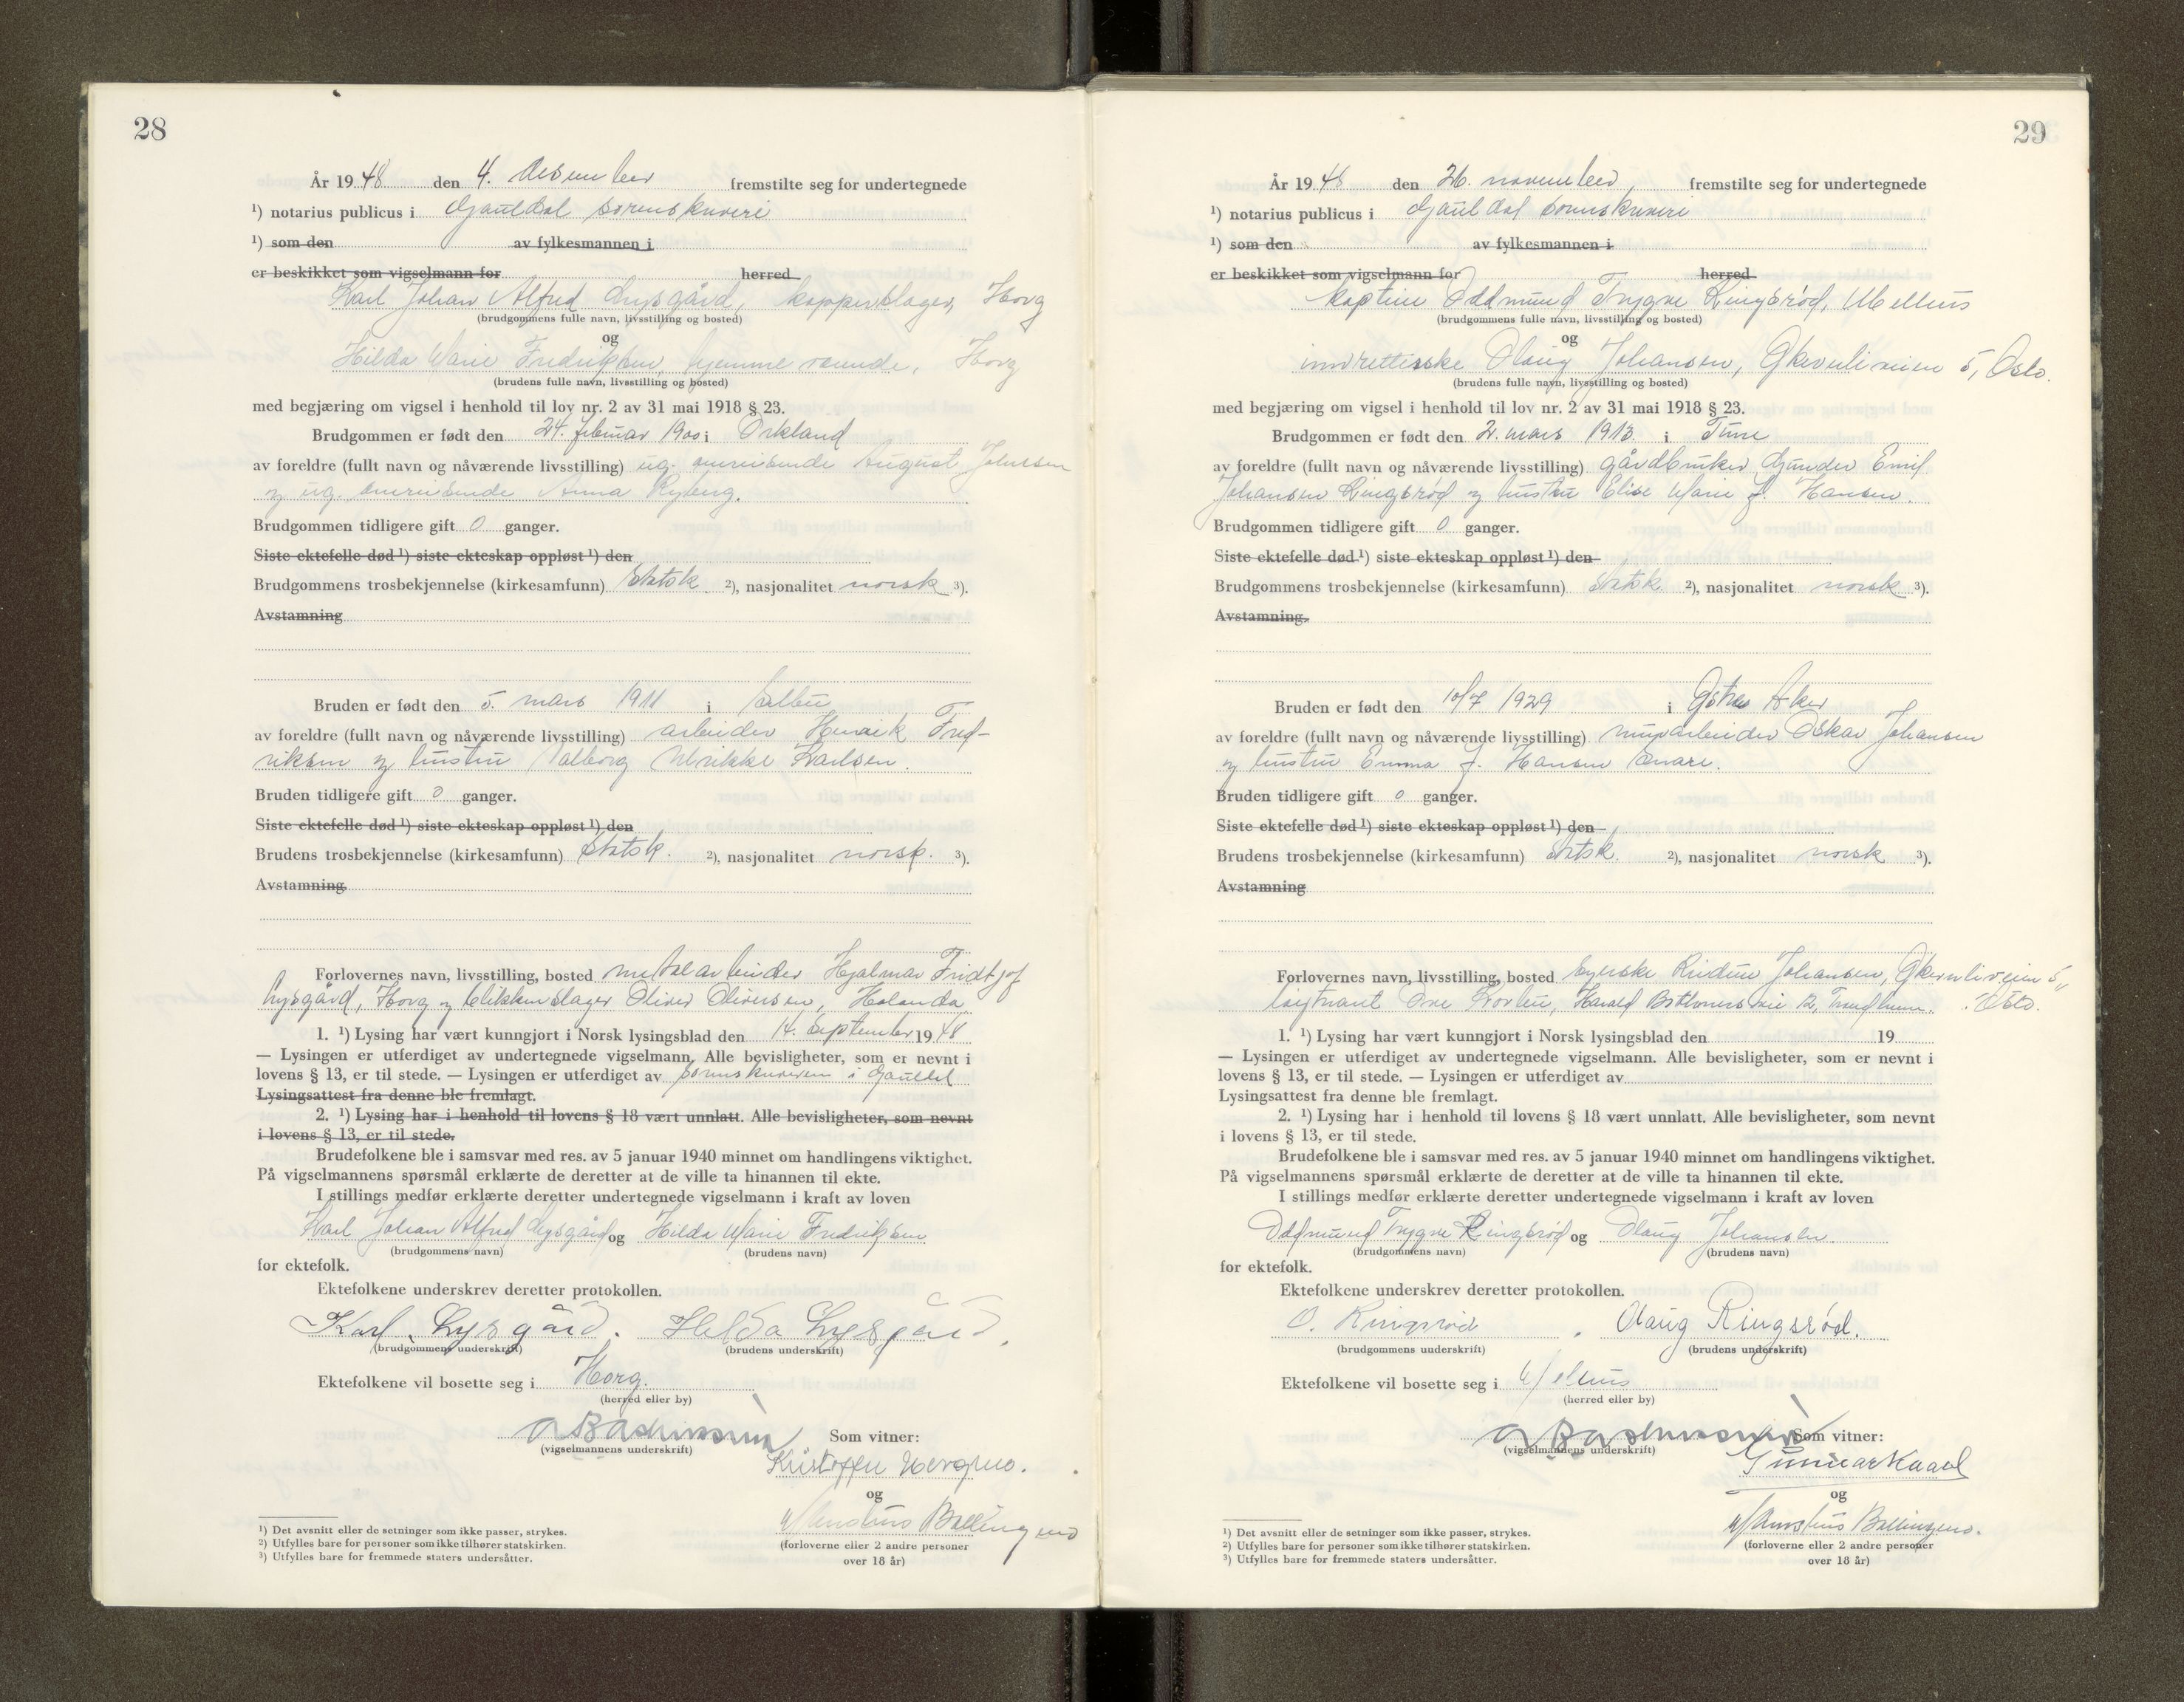 28
År 1948 den 4. desember fremstilte seg for undertegnede
¹) notarius publicus i Gauldal sorenskriveri
¹) som den av fylkesmannen i
er beskikket som vigselmann for herred
Karl Johan Alfred Lysgård, kopperslager, Horg
(brudgommens fulle navn, livsstilling og bosted)
og
Hilda Marie Fredriksen, hjemmeværende, Horg
(brudens fulle navn, livsstilling og bosted)
med begjæring om vigsel i henhold til lov nr. 2 av 31 mai 1918 § 23.
Brudgommen er født den 24. februar 1900 i Orkland
av foreldre (fullt navn og nåværende livsstilling) ug. omreisende August Johnsen
og ug. omreisende Anna Nyberg.
Brudgommen tidligere gift 0 ganger.
Siste ektefelle død ¹) siste ekteskap oppløst ¹) den
Brudgommens trosbekjennelse (kirkesamfunn) Statsk. ²), nasjonalitet norsk ³).
Avstamning
Bruden er født den 5. mars 1911 i Selbu
av foreldre (fullt navn og nåværende livsstilling) arbeider Henrik Fred-
riksen og hustru Valborg Ulrikke Karlsen.
Bruden tidligere gift 0 ganger.
Siste ektefelle død ¹) siste ekteskap oppløst ¹) den
Brudens trosbekjennelse (kirkesamfunn) Statsk. ²), nasjonalitet norsk. ³).
Avstamning
Forlovernes navn, livsstilling, bosted metalarbeider Hjalmar Fridtjof
Lysgård, Horg og blikkenslager Oliver Oliversen, Hølonda
1. ¹) Lysing har vært kunngjort i Norsk lysingsblad den 14. september 1948
— Lysingen er utferdiget av undertegnede vigselmann. Alle bevisligheter, som er nevnt i
lovens § 13, er til stede. — Lysingen er utferdiget av sorenskriveren i Gauldal
Lysingsattest fra denne ble fremlagt.
2. ¹) Lysing har i henhold til lovens § 18 vært unnlatt. Alle bevisligheter, som nevnt
i lovens § 13, er til stede.
Brudefolkene ble i samsvar med res. av 5 januar 1940 minnet om handlingens viktighet.
På vigselmannens spørsmål erklærte de deretter at de ville ta hinannen til ekte.
I stillings medfør erklærte deretter undertegnede vigselmann i kraft av loven
Karl Johan Alfred Lysgård og Hilda Marie Fredriksen
(brudgommens navn) (brudens navn)
for ektefolk.
Ektefolkene underskrev deretter protokollen.
Karl Lysgård. Hilda Lysgård.
(brudgommens underskrift) (brudens underskrift)
Ektefolkene vil bosette seg i Horg.
(herred eller by)
(vigselmannens underskrift) Som vitner:
Kristoffer
og
Bollingmo
(forloverne eller 2 andre personer
over 18 år)
¹) Det avsnitt eller de setninger som ikke passer, strykes.
²) Utfylles bare for personer som ikke tilhører statskirken.
³) Utfylles bare for fremmede staters undersåtter.
29
År 1948 den 26. november, fremstilte seg for undertegnede
¹) notarius publicus i Gauldal sorenskriveri
¹) som den av fylkesmannen i
er beskikket som vigselmann for herred
kaptein Oddmund Trygve Ringsrød, Melhus
(brudgommens fulle navn, livsstilling og bosted)
og
Olaug Johansen, 5, Oslo.
(brudens fulle navn, livsstilling og bosted)
med begjæring om vigsel i henhold til lov nr. 2 av 31 mai 1918 § 23.
Brudgommen er født den 2. mars 1913 i Tune
av foreldre (fullt navn og nåværende livsstilling) gårdbruker Gunder Emil
Johansen Ringsrød og hustru Elise Marie f. Hansen.
Brudgommen tidligere gift 0 ganger.
Siste ektefelle død ¹) siste ekteskap oppløst ¹) den
Brudgommens trosbekjennelse (kirkesamfunn) Statsk. ²), nasjonalitet norsk ³).
Avstamning.
Bruden er født den 10/7 1929 i Østre Aker
av foreldre (fullt navn og nåværende livsstilling) murarbeider Oskar Johansen
og hustru Emma f. Hansen
Bruden tidligere gift 0 ganger.
Siste ektefelle død ¹) siste ekteskap oppløst ¹) den
Brudens trosbekjennelse (kirkesamfunn) Statsk. ²), nasjonalitet norsk ³).
Avstamning
Forlovernes navn, livsstilling, bosted syerske Johansen, 5,
løytnant Harald vei 12, Trondheim. Oslo.
1. ¹) Lysing har vært kunngjort i Norsk lysingsblad den 19
— Lysingen er utferdiget av undertegnede vigselmann. Alle bevisligheter, som er nevnt i
lovens § 13, er til stede. — Lysingen er utferdiget av
Lysingsattest fra denne ble fremlagt.
2. ¹) Lysing har i henhold til lovens § 18 vært unnlatt. Alle bevisligheter, som nevnt
i lovens § 13, er til stede.
Brudefolkene ble i samsvar med res. av 5 januar 1940 minnet om handlingens viktighet.
På vigselmannens spørsmål erklærte de deretter at de ville ta hinannen til ekte.
I stillings medfør erklærte deretter undertegnede vigselmann i kraft av loven
Oddmund Trygve Ringsrød og Olaug Johansen
(brudgommens navn) (brudens navn)
for ektefolk.
Ektefolkene underskrev deretter protokollen.
O. Ringsrød. Olaug Ringsrød.
(brudgommens underskrift) (brudens underskrift)
Ektefolkene vil bosette seg i Melhus
(herred eller by)
(vigselmannens underskrift) Som vitner:
Gunnar Kaael
og
Bollingmo.
(forloverne eller 2 andre personer
over 18 år)
¹) Det avsnitt eller de setninger som ikke passer, strykes.
²) Utfylles bare for personer som ikke tilhører statskirken.
³) Utfylles bare for fremmede staters undersåtter.